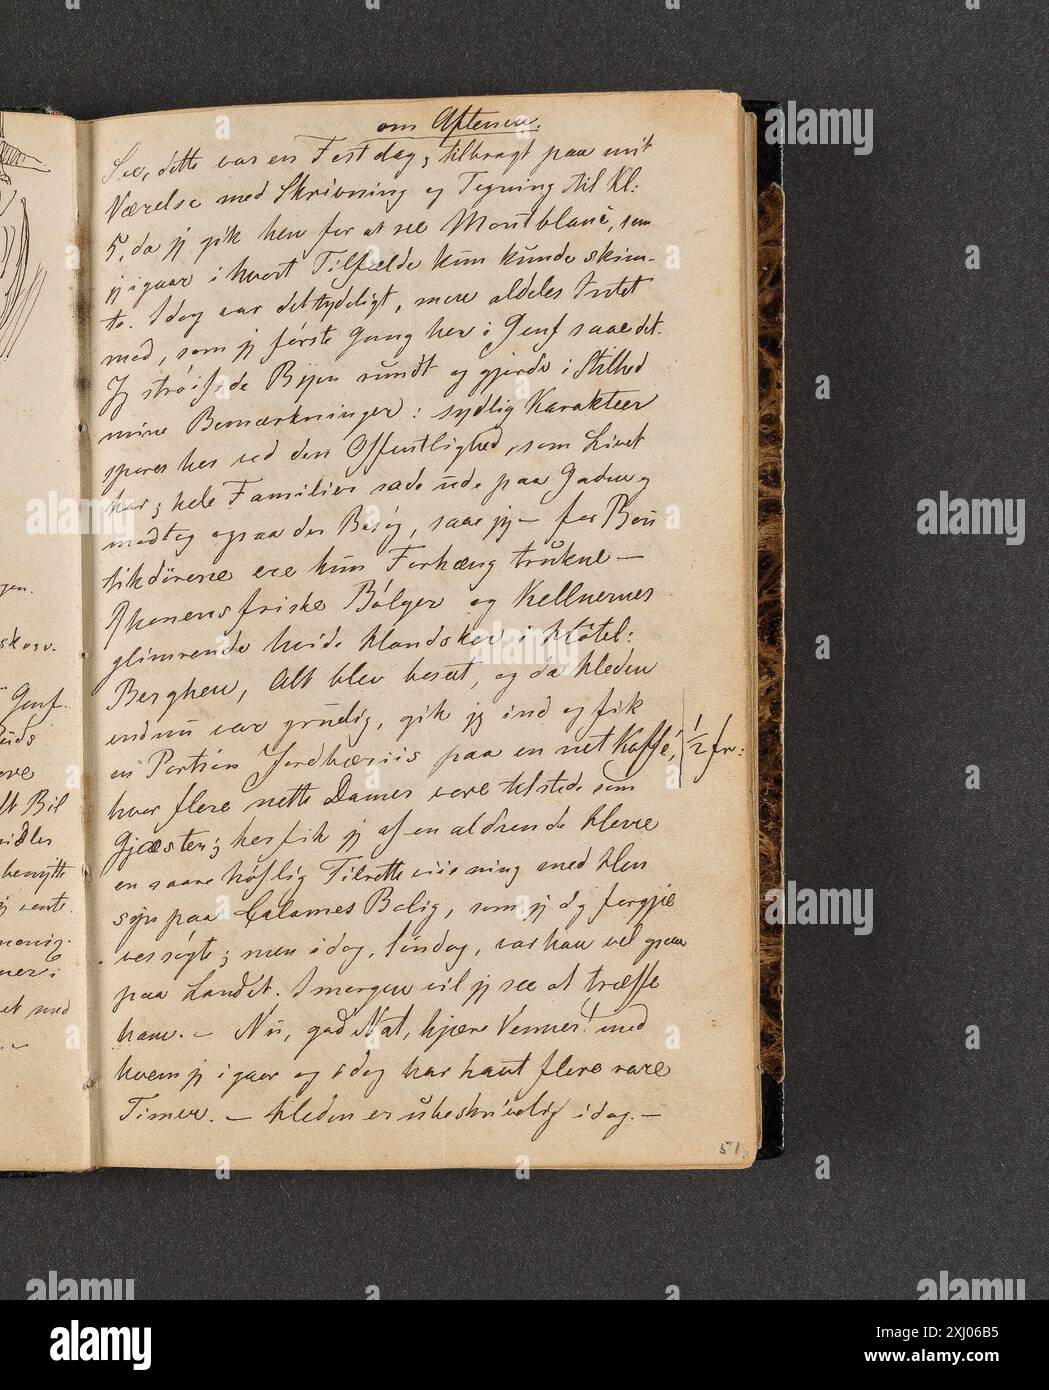 om Aftenen.
See, dette var en Festdag; tilbragt paa mit
Værelse med Skrivning og Tegning til Kl:
5, da jeg gik hen for at see Montblanc, som
jeg igaar i hvert Tilfælde kun kunde skim-
te. Idag var det tydeligt, men aldeles Intet
mod, som jeg første Gang her i Genf saae det.
Jeg strøifede Byen rundt og gjorde i Stilhed
mine Bemærkninger: sydlig Karakteer
spores her ved den Offentlighed, som Livet
har; hele Familier sade ude paa Gaden og
modtog ogsaa der Besøg, saae jeg – for Bou
tikdørene ere kun Forhæng trukne –
Rhonens friske Bølger og Kellnernes
glimrende hvide Handsker i Hôtel:
Berghen, Alt blev beseet, og da Heden
endnu var grundig, gik jeg ind og fik
en Portion Jordbæriis paa en net Kaffé, 1/2 fr:
hvor flere nette Damer vare tilstede som
Gjæster; her fik jeg af en aldrende Herre
en saare høflig Tilretteviisning med Hen
syn paa Calames Bolig, som jeg dg forgjæ
ves søgte; men idag, Søndag, var han vel ogsaa
paa Landet. Imorgen vil jeg see at træffe
ham. – Nu, god Nat, kjære Venner! med
hvem jeg igaar og idag har havt flere rare
Timer. – Heden er ubeskrivelig idag. –
51.
gen.
Genf.
Bil
benytte
alamy
Image ID: 2XJ06B5
www.alamy.com